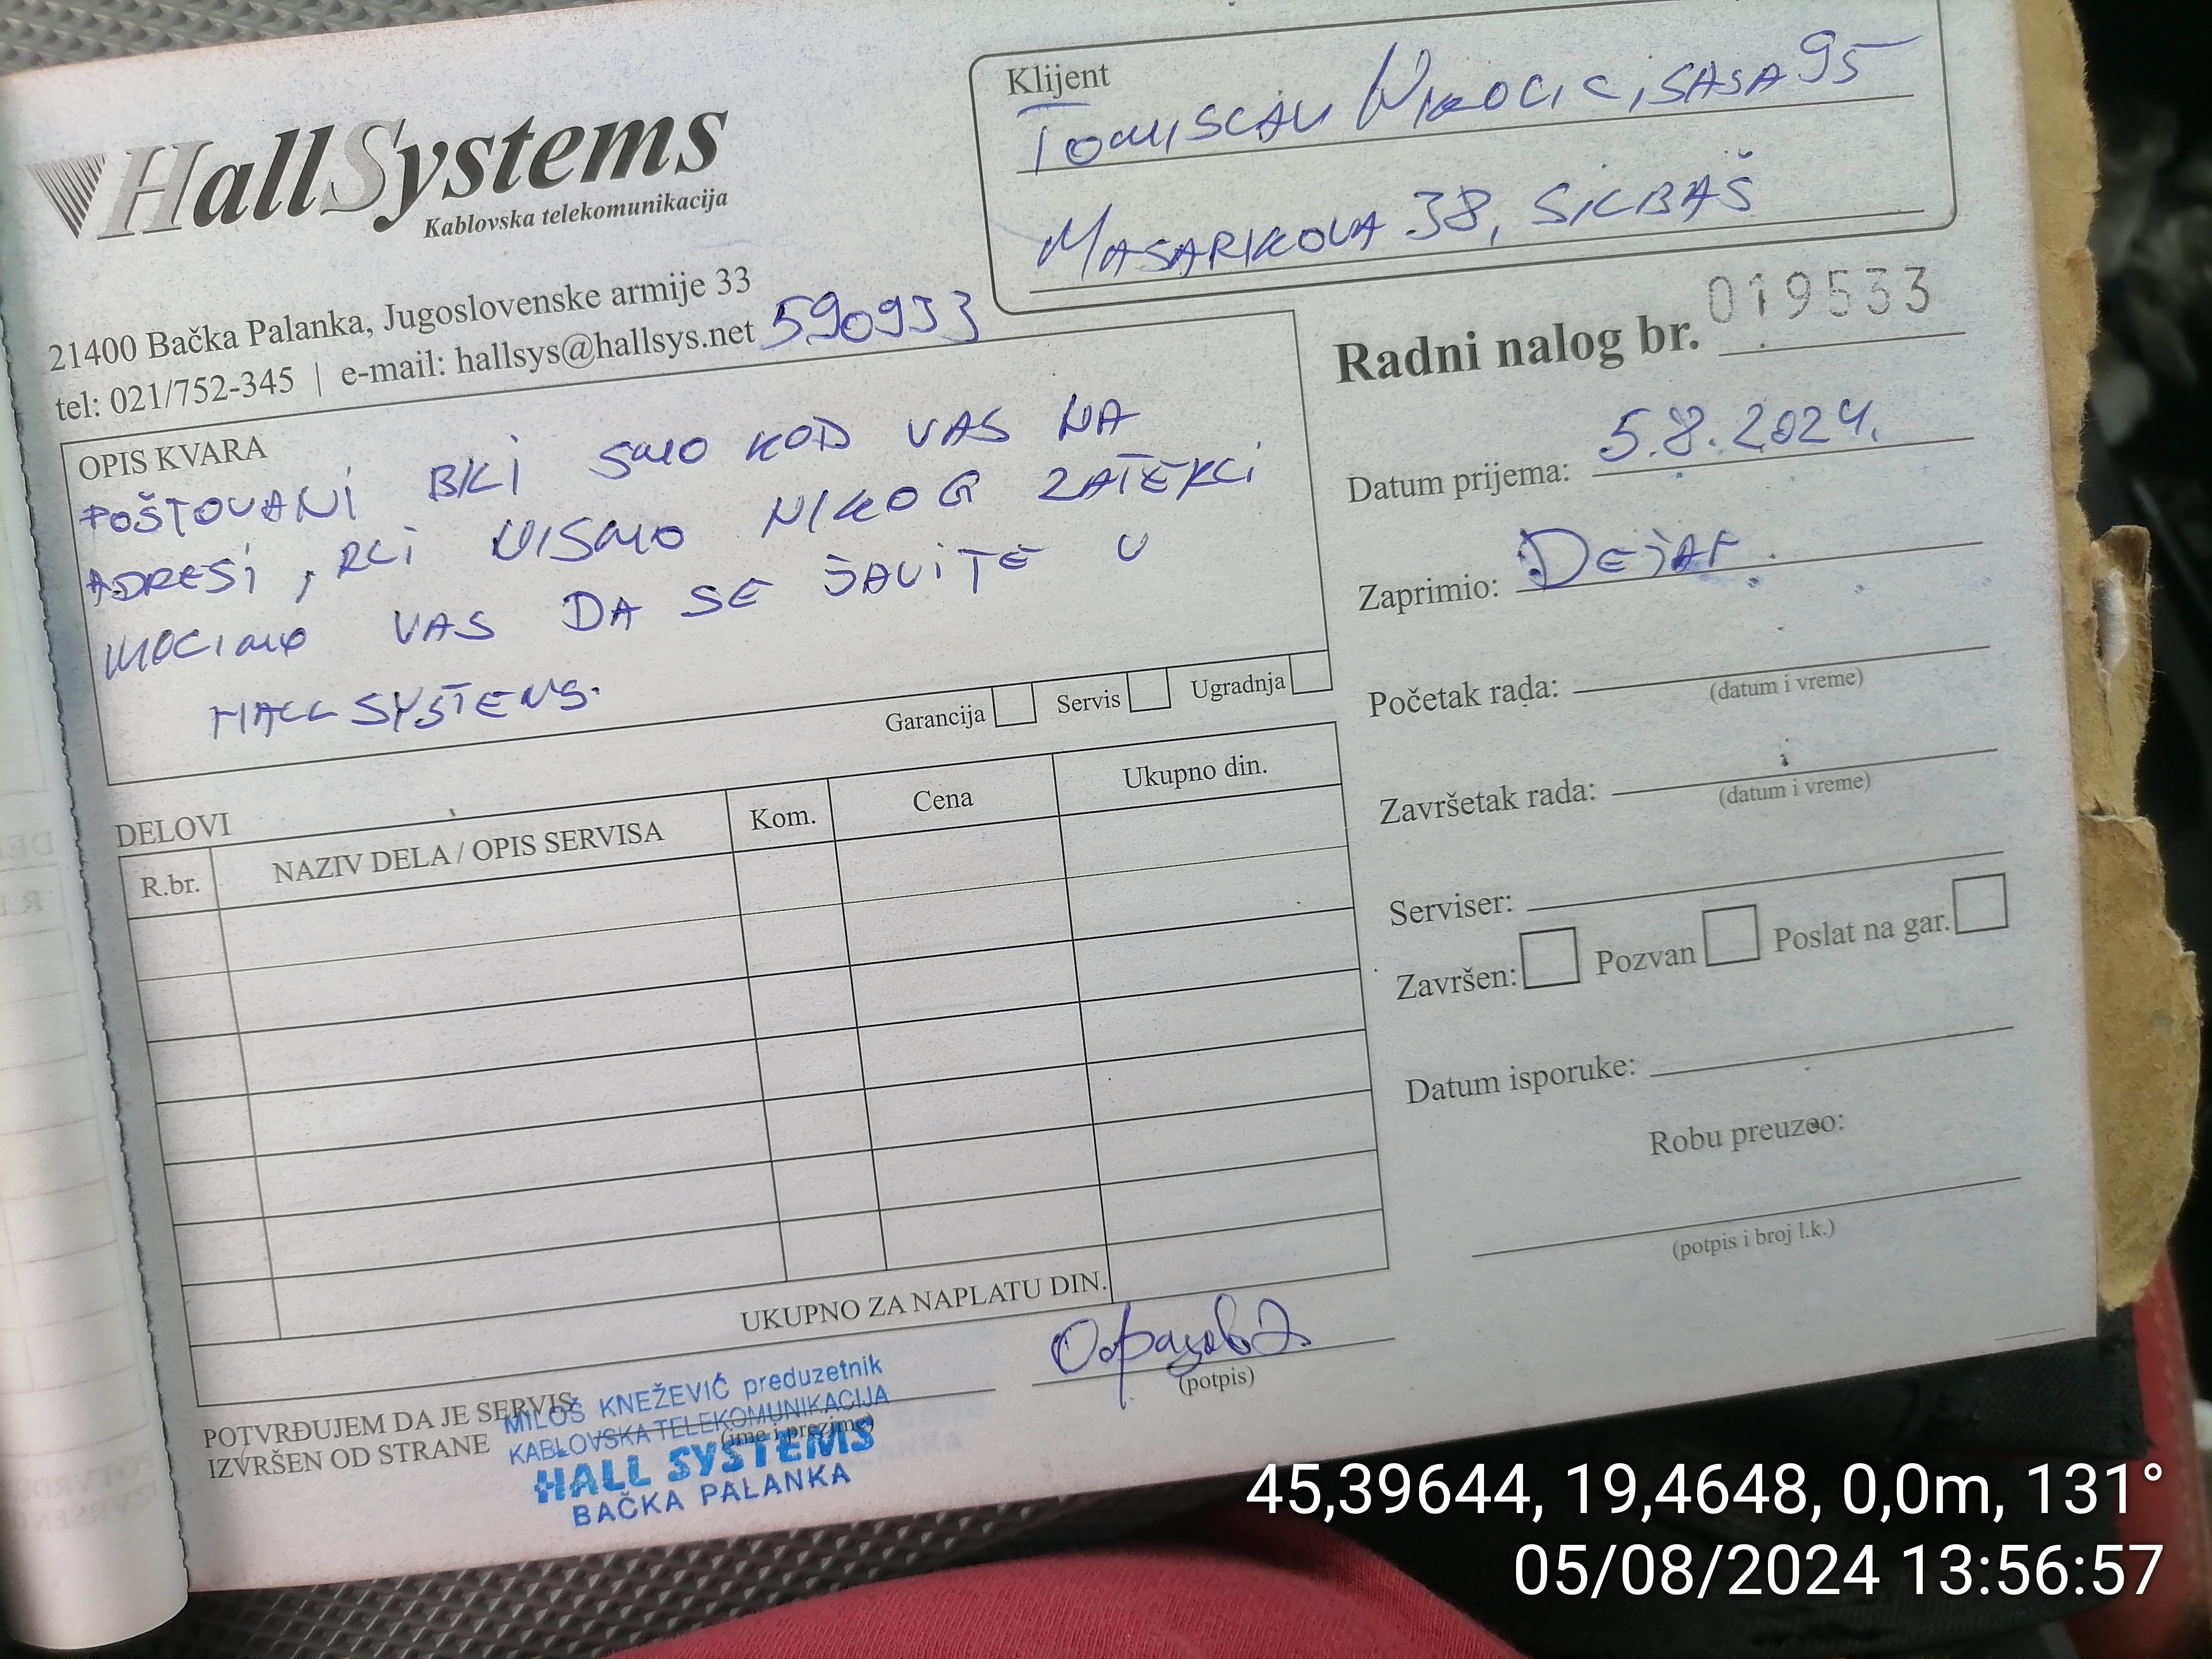 HallSystems
Kablovska telekomunikacija
21400 Bačka Palanka, Jugoslovenske armije 33
tel: 021/752-345 | e-mail: hallsys@hallsys.net 590933
Klijent
TOMISLAV NIKOLIC, SASA95
MASARIKOVA 38, SILBAŠ
OPIS KVARA
POŠTOVANI BILI SMO KOD VAS NA
ADRESI, ALI NISMO NIKOG ZATEKLI
MOLIMO VAS DA SE JAVITE U
HALL SYSTEMS.
Garancija Servis Ugradnja
Radni nalog br. 019533
Datum prijema: 5.8.2024.
Zaprimio: DEJAN
Početak rada:
(datum i vreme)
Završetak rada:
(datum i vreme)
Serviser:
Završen: Pozvan Poslat na gar.
Datum isporuke:
Robu preuzeo:
(potpis i broj l.k.)
DELOVI
R.br. NAZIV DELA / OPIS SERVISA Kom. Cena Ukupno din.
UKUPNO ZA NAPLATU DIN.
POTVRĐUJEM DA JE SERVIS
IZVRŠEN OD STRANE
(ime i prezime)
(potpis)
MILOŠ KNEŽEVIĆ preduzetnik
KABLOVSKA TELEKOMUNIKACIJA
HALL SYSTEMS
BAČKA PALANKA
45,39644, 19,4648, 0,0m, 131°
05/08/2024 13:56:57